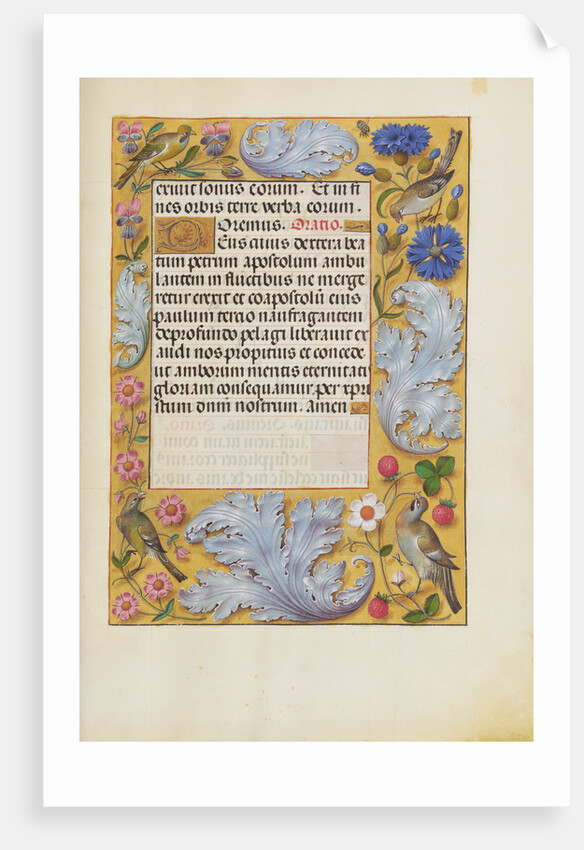 exivit sonus eorum. Et in fi
nes orbis terre verba eorum.
Oremus. Oratio.
Deus cuius dextera bea
tum petrum apostolum ambu
lantem in fluctibus ne merge
retur erexit et coapostolũ eius
paulum tercio naufragantem
de profundo pelagi liberavit ex
audi nos propitius et concede
ut amborum meritis eternitatis
gloriam consequamur. per xpri
stum dnm̃ nostrum. Amen